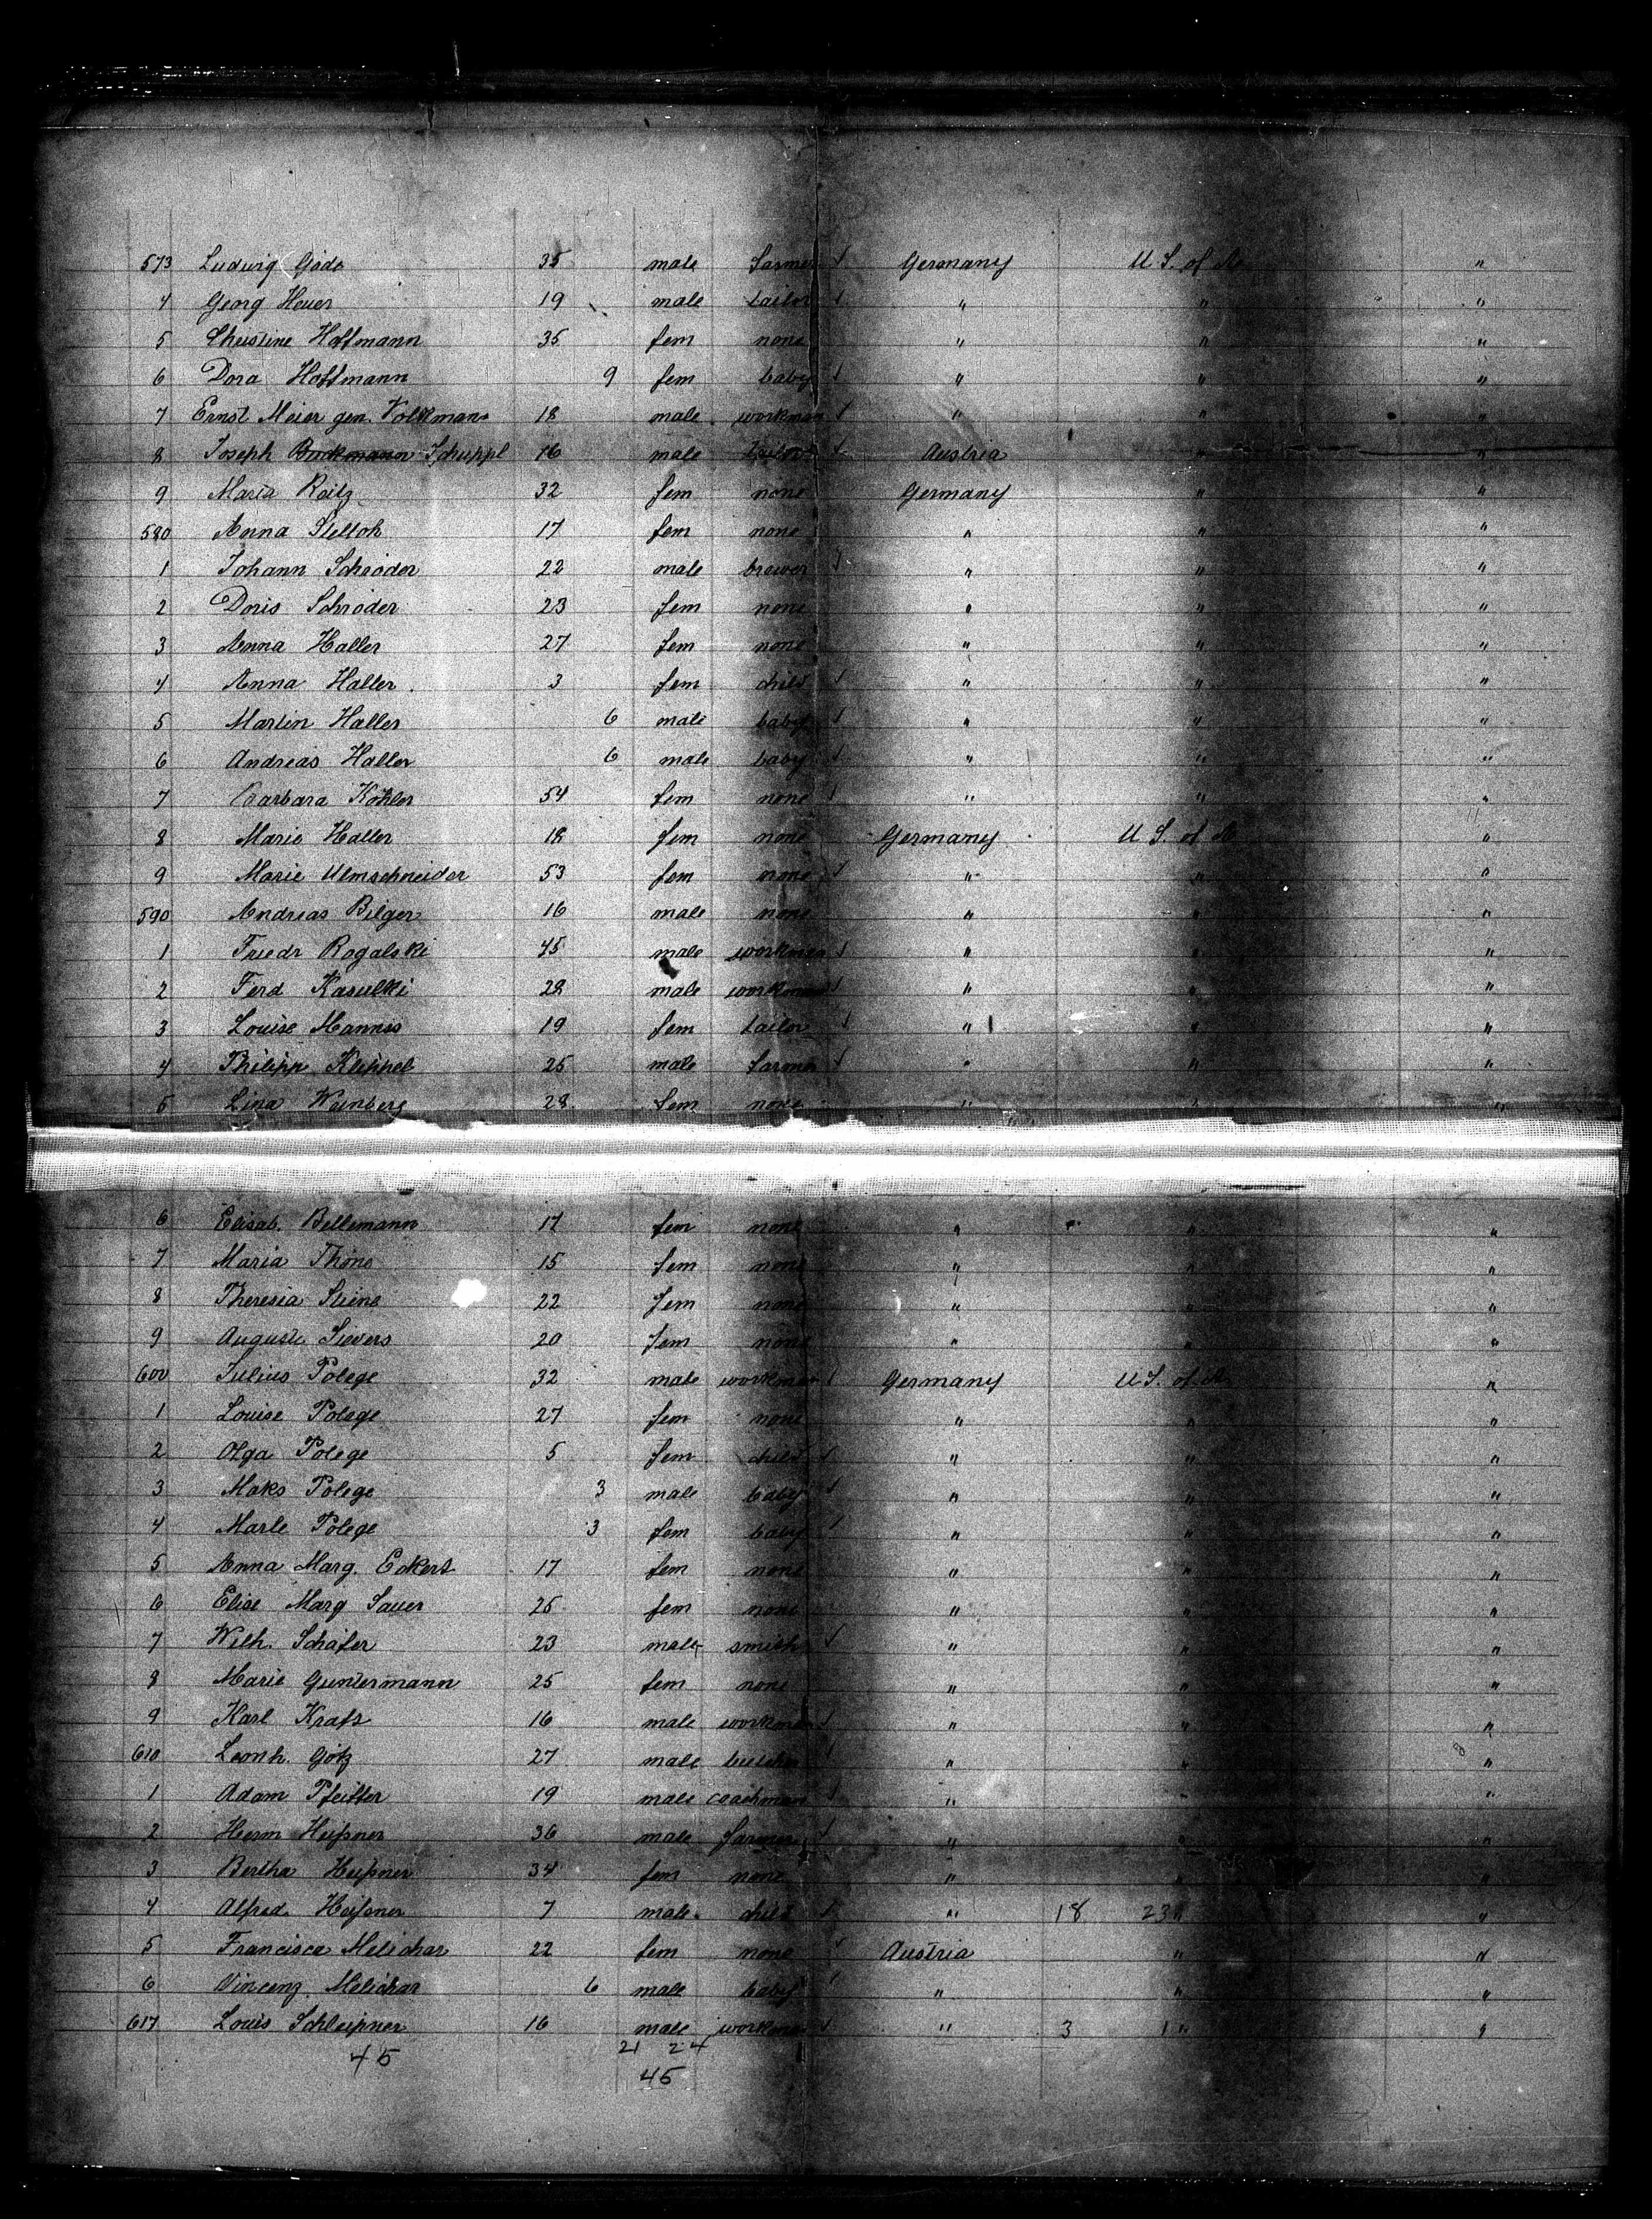 573 Ludwig Gode 35 male farmer √ Germany U S. of A. "
4 Georg Heuer 19 male tailor √ " " "
5 Christine Hoffmann 35 fem none " " "
6 Dora Hoffmann 9 fem baby √ " " "
7 Ernst Meier gen. Volkmann 18 male workman √ " " "
8 Joseph Schuppl 16 male tailor √ Austria " "
9 Maria Raitz 32 fem none Germany " "
580 Anna Stelloh 17 fem none " " "
1 Johann Schröder 22 male brewer √ " " "
2 Doris Schröder 23 fem none " " "
3 Anna Haller 27 fem none " " "
4 Anna Haller 3 fem child √ " " "
5 Martin Haller 6 male baby √ " " "
6 Andreas Haller 6 male baby √ " " "
7 Barbara Köhler 54 fem none √ " " "
8 Marie Haller 18 fem none Germany U S. of A "
9 Marie Ulmschneider 53 fem none √ " " "
590 Andreas Bilger 16 male none " " "
1 Friedr Rogalski 45 male workman √ " " "
2 Ferd Kasulki 28 male workman √ " " "
3 Louise Manns 19 fem tailor √ " " "
4 Philipp Klippel 25 male farmer √ " " "
5 Lina Weinberg 28 fem none " " "
6 Elisab. Bellemann 17 fem none " " "
7 Maria Thöne 15 fem none " " "
8 Theresia Stiene 22 fem none " " "
9 Auguste Sievers 20 fem none " " "
600 Julius Polege 32 male workman √ Germany U S. of A "
1 Louise Polege 27 fem none " " "
2 Olga Polege 5 fem child √ " " "
3 Maks Polege 3 male baby √ " " "
4 Marle Polege 3 fem baby √ " " "
5 Anna Marg. Eckert 17 fem none " " "
6 Elise Marg Sauer 25 fem none " " "
7 Wilh. Schäfer 23 male smith √ " " "
8 Marie Guntermann 25 fem none " " "
9 Karl Kraft 16 male workman √ " " "
610 Leonh. Götz 27 male butcher √ " " "
1 Adam Pfeiffer 19 male coachman √ " " "
2 Herm Heißner 36 male farmer √ " " "
3 Bertha Heißner 34 fem none " " "
4 Alfred Heißner 7 male child √ " 18 23 " "
5 Francisca Melichar 22 fem none √ Austria " "
6 Vincenz Melichar 6 male baby √ " " "
617 Louis Schleißner 16 male workman √ " 3 1 " "
45 21 24
45